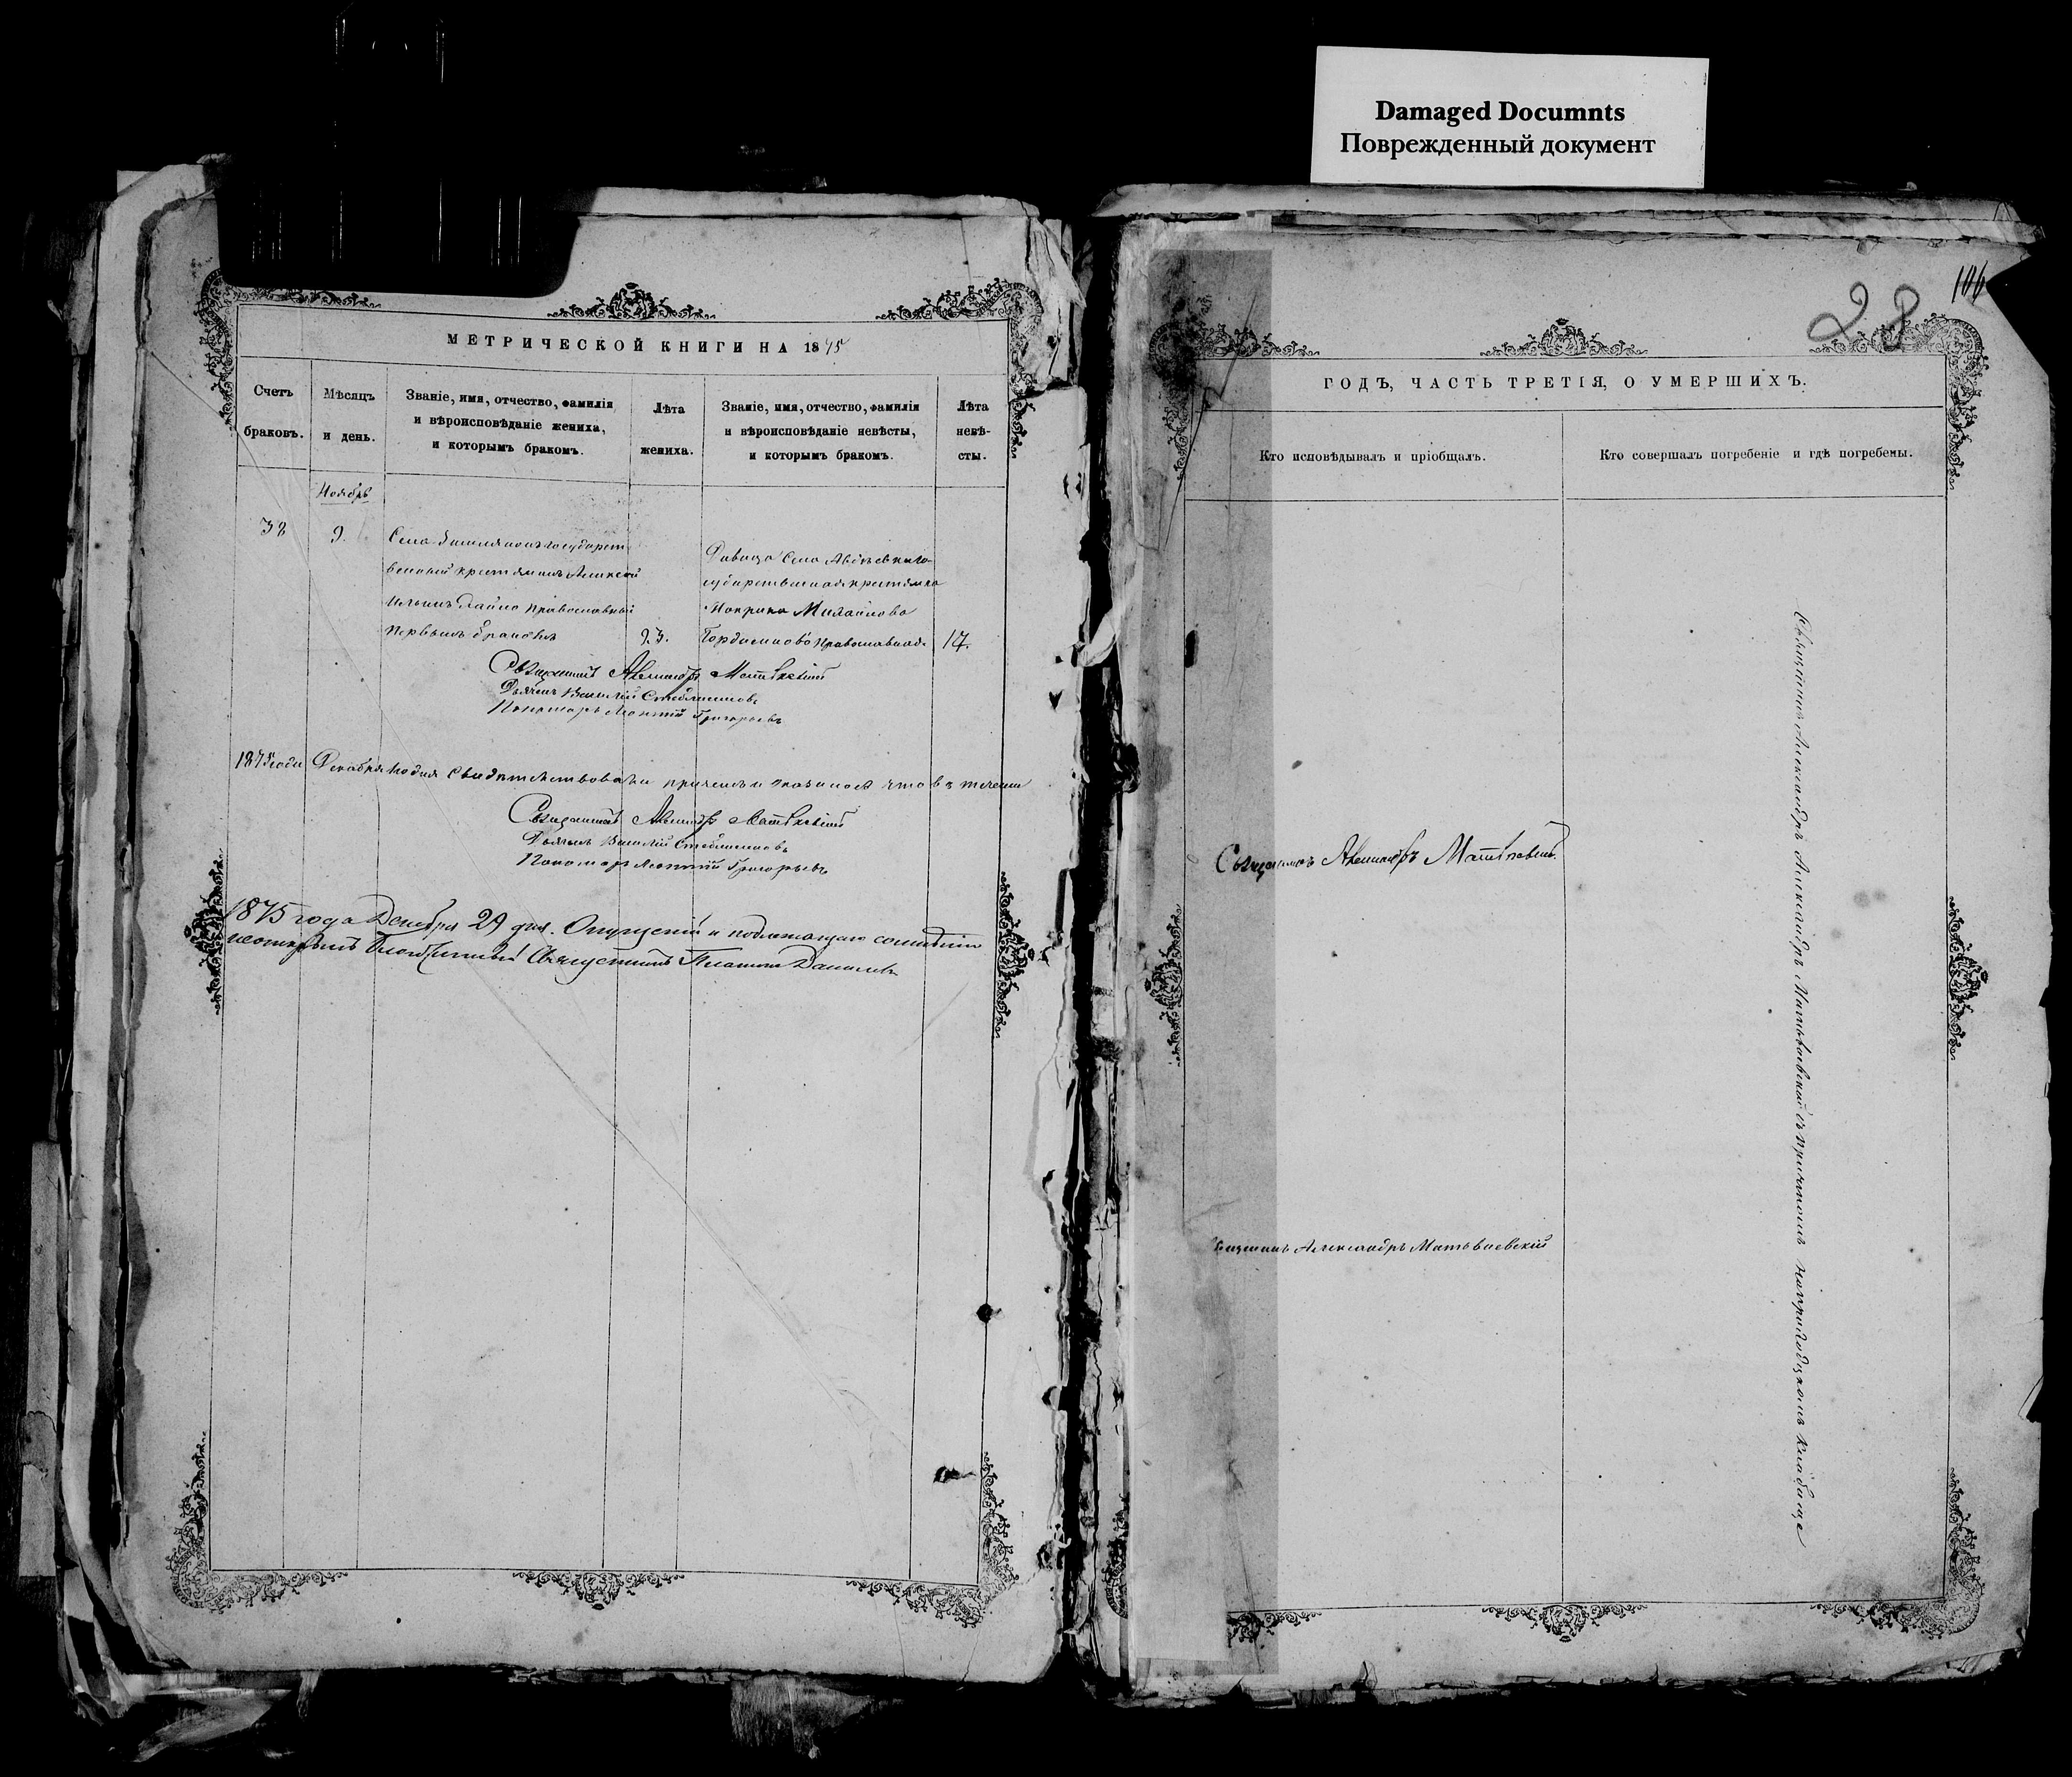 Damaged Documnts
Поврежденный документ
МЕТРИЧЕСКОЙ КНИГИ НА 1875
Счетъ браковъ.
Мѣсяцъ и день.
Званіе, имя, отчество, фамилія
и вѣроисповѣданіе жениха,
и которымъ бракомъ.
Лѣта жениха.
Званіе, имя, отчество, фамилія
и вѣроисповѣданіе невѣсты,
и которымъ бракомъ.
Лѣта
невѣ-
сты.
Ноябрь
38
9.
Села государст
венный крестьянинъ Алексей
Ильинъ православный
первымъ бракомъ
23.
Девица Села
сударственная крестьянка
Михайлова
православная
17.
Священникъ Александръ Матвѣевскій
Дьячекъ Василій
Пономарь Леонтій Григорьевъ
1875 года Декабря дня свидетельствовали причемъ и оказалось что въ течении
Священникъ Александръ Матвѣевскій
Дьячекъ Василій
Пономарь Леонтій Григорьевъ
1875 года Декабря 29 дня. и подлежащаго
Благочинный Священникъ
28
106
ГОДЪ, ЧАСТЬ ТРЕТІЯ, О УМЕРШИХЪ.
Кто исповѣдывалъ и пріобщалъ.
Кто совершалъ погребеніе и гдѣ погребены.
Священникъ Александръ Матвѣевскій
Священникъ Александръ Матвѣевскій
Священникъ Александръ Александръ Матвѣевскій съ причтомъ на приходскомъ кладбище